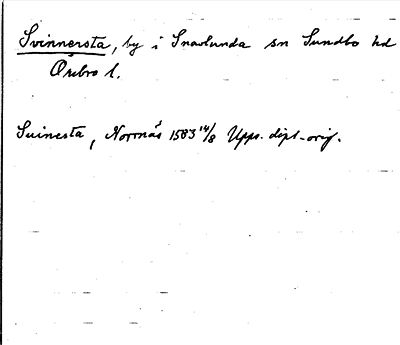 Svinnersta, by i Snavlunda sn Sundbo hd
Örebro l.
Suinesta, Norrnäs 1583 14/8 Upps. dipl. orig.